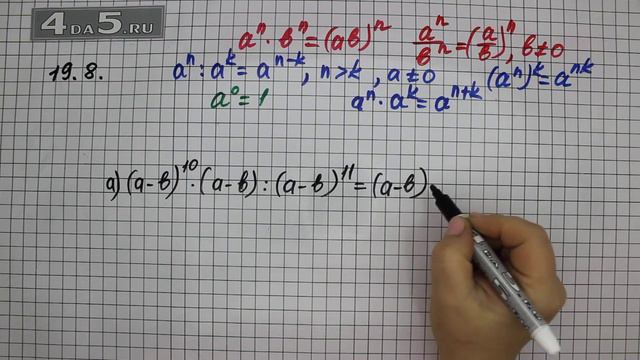 4DA5.RU
aⁿ · bⁿ = (ab)ⁿ   aⁿ/bⁿ = (a/b)ⁿ, b ≠ 0
19.8.   aⁿ : aᵏ = aⁿ⁻ᵏ, n > k, a ≠ 0   (aⁿ)ᵏ = aⁿᵏ
a⁰ = 1   aⁿ · aᵏ = aⁿ⁺ᵏ
а) (a-b)¹⁰ · (a-b) : (a-b)¹¹ = (a-b)